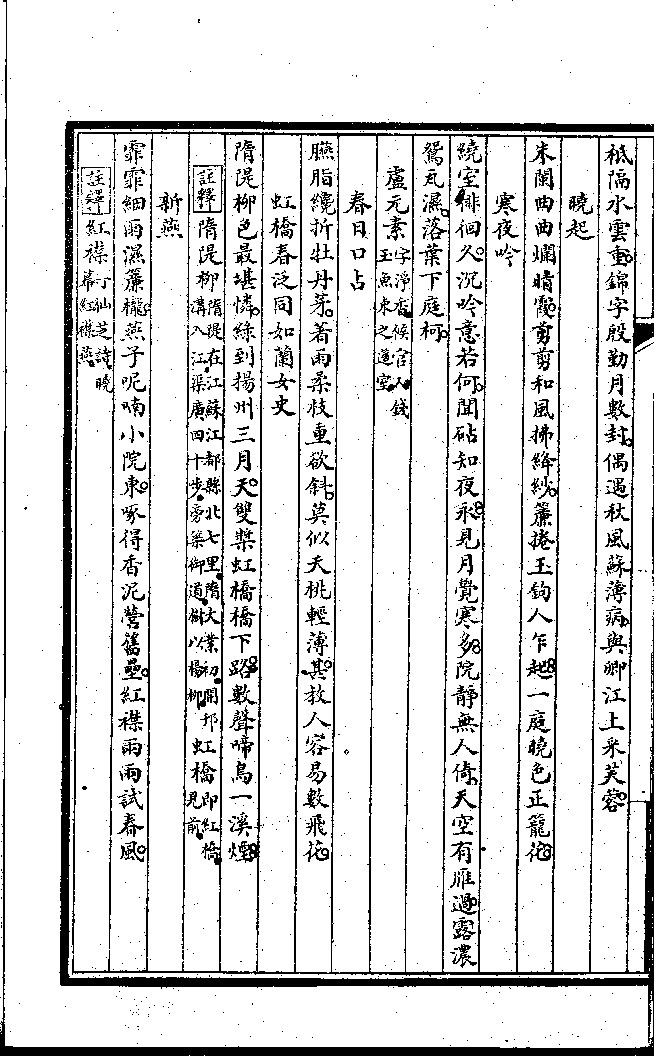 祇隔水雲重。錦字殷勤月數封。偶遇秋風蘇薄病。與卿江上采芙蓉。
曉起
朱闌曲曲爛晴霞。剪剪和風拂絳紗。簾捲玉鉤人乍起。一庭曉色正籠花。
寒夜吟
繞室徘徊久。沉吟意若何。聞砧知夜永。見月覺寒多。院靜無人倚。天空有雁過。露濃
鴛瓦濕。落葉下庭柯。
盧元素 字淨香。候官人。錢玉魚東之簉室。
春日口占
臙脂纔折牡丹芽。著雨柔枝重欲斜。莫似夭桃輕薄甚。教人容易數飛花。
虹橋春泛同如蘭女史
隋隄柳色最堪憐。絲到揚州三月天。雙槳虹橋橋下路。數聲啼鳥一溪煙。
註釋 隋隄柳 隋隄在江蘇江都縣北七里。隋大業初。開邗溝入江。渠廣四十步。旁築御道。樹以楊柳。 虹橋 即紅橋。見前。
新燕
霏霏細雨濕簾櫳。燕子呢喃小院東。啄得香泥營舊壘。紅襟兩兩試春風。
註釋 紅襟 丁仙芝詩。曉幕紅襟燕。